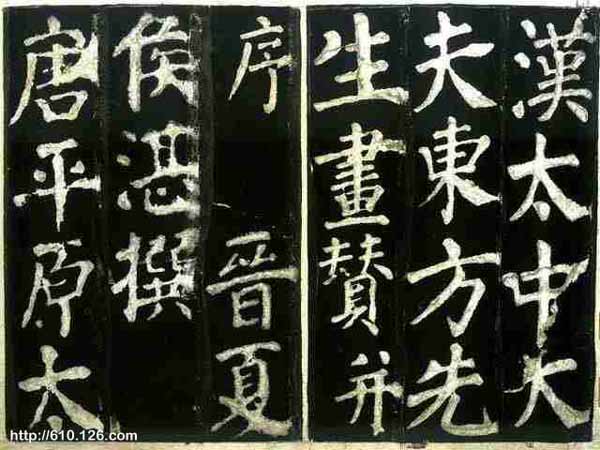 漢太中大
夫東方先
生畫赞并
序 晉夏
侯湛撰
唐平原太
http://610.126.com